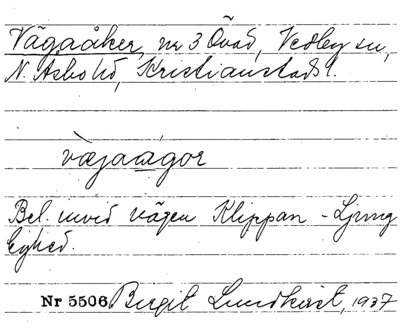 Vägaåker, nr 3 Övad, Vedby sn,
N. Asbo hd, Kristianstads l.
väjaågor
Bel. invid vägen Klippan - Ljung
byhed.
Nr 5506 Birgit Lundkvist, 1937